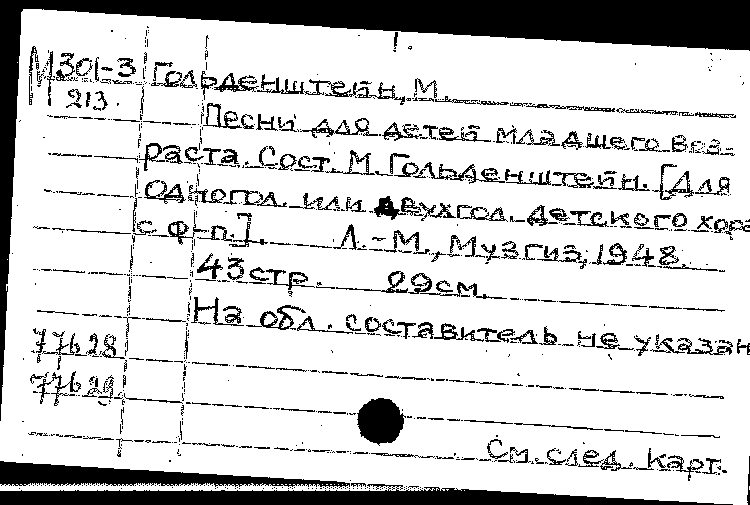 М301-3 Гольденштейн, М.
213.
Песни для детей младшего воз-
раста. Сост. М. Гольденштейн. [Для
одногол. или двухгол. детского хора
с ф-п.]. Л.-М., Музгиз, 1948.
43стр. 29см.
На обл. составитель не указан
77628
77629.
См. след. карт.